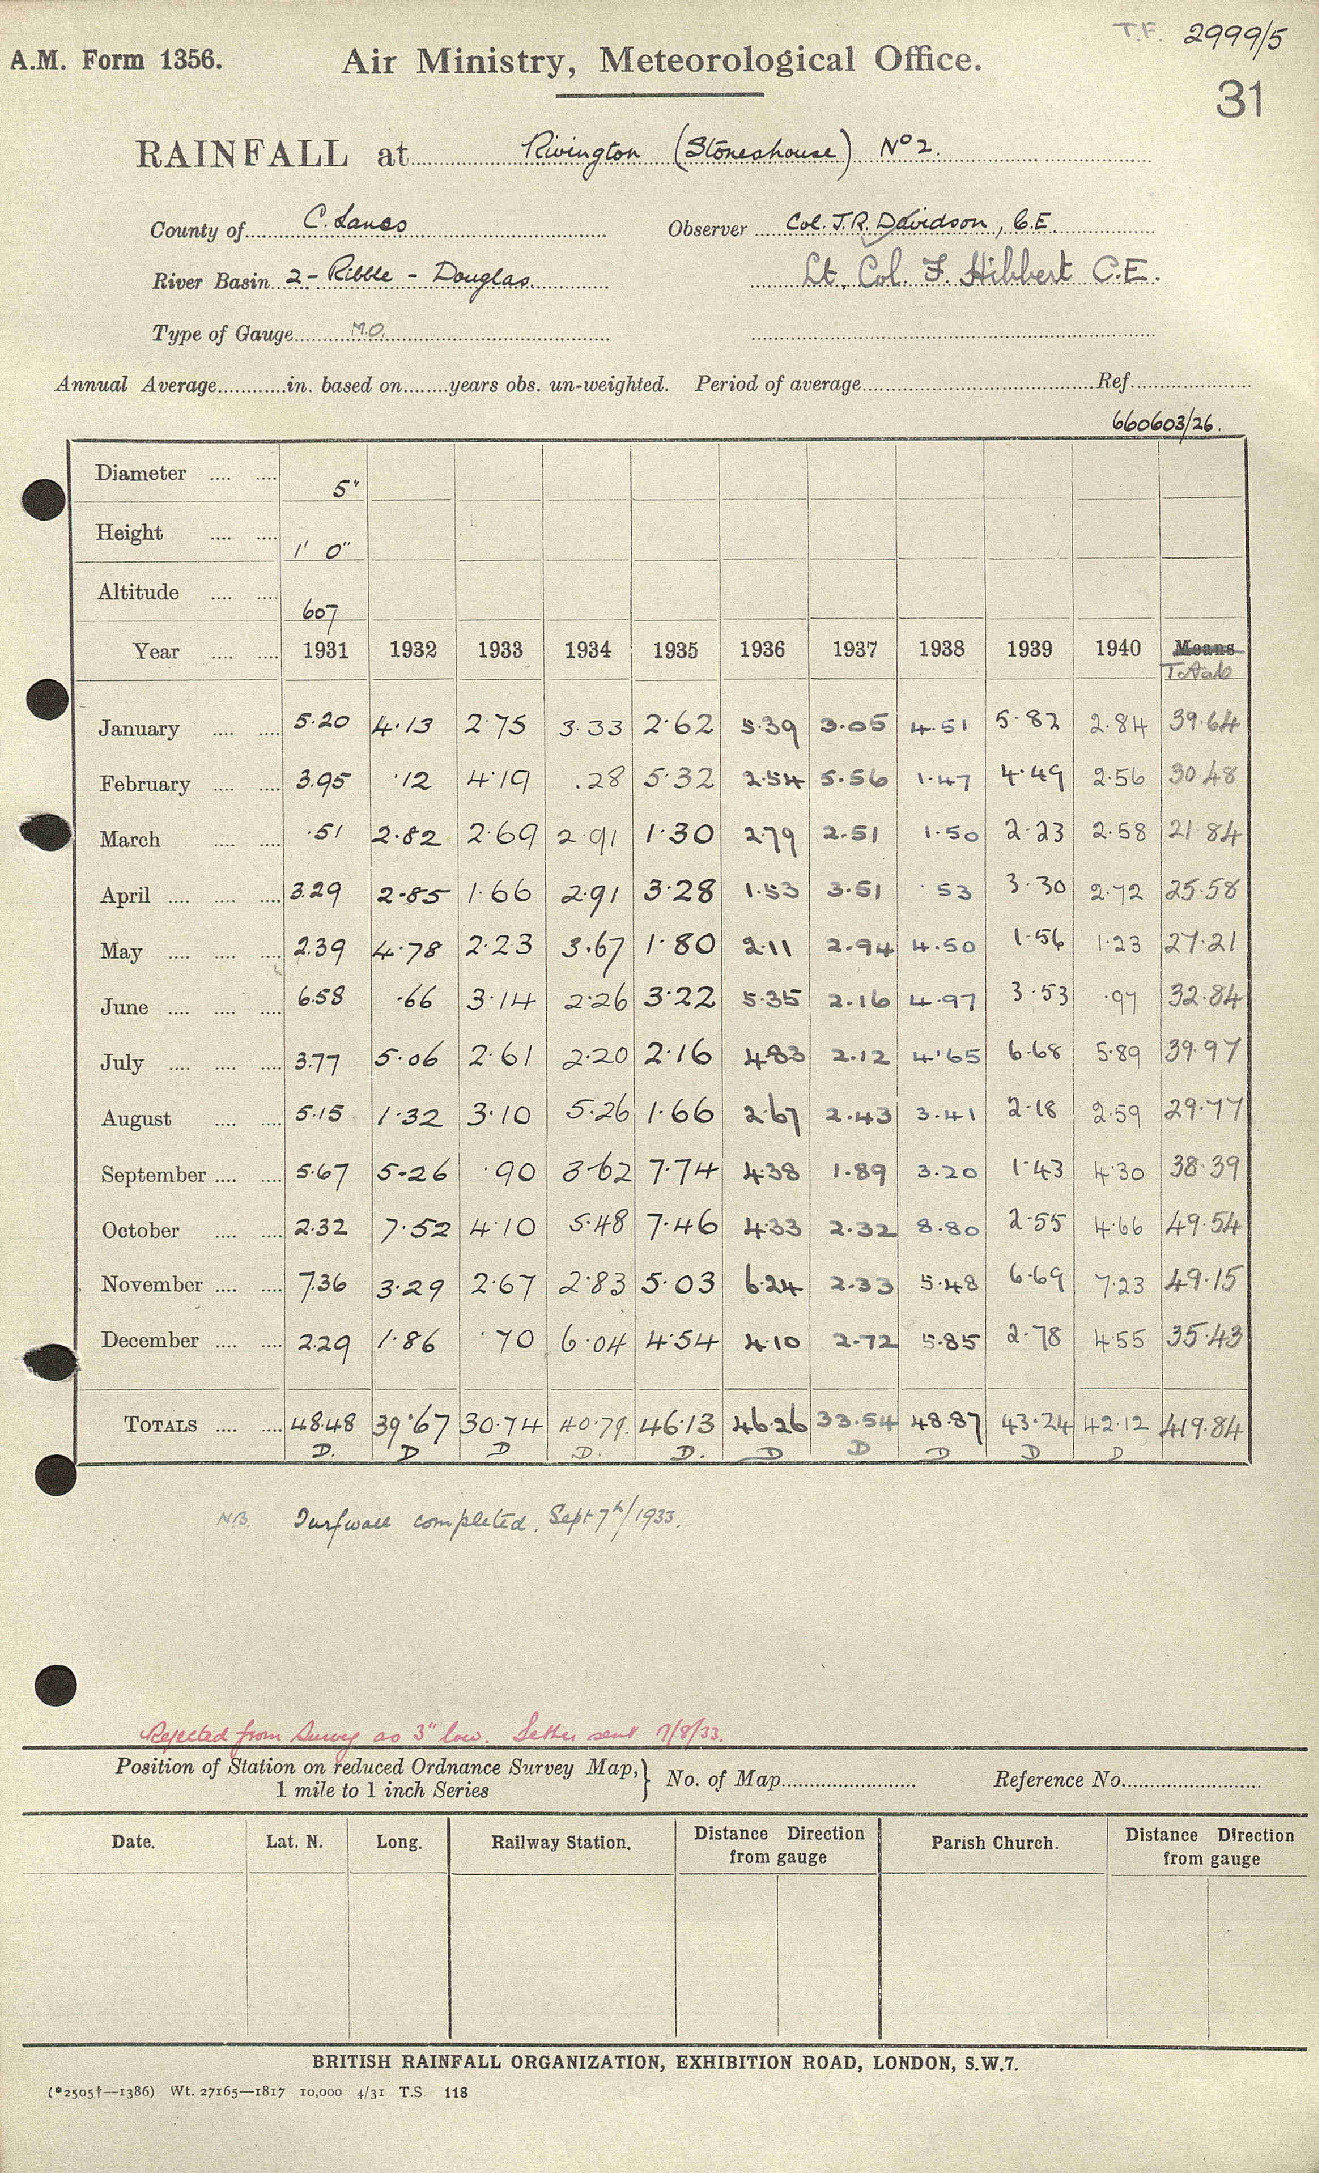 T.F. 2999/5
A.M. Form 1356. Air Ministry, Meteorological Office.
31
RAINFALL at Rivington (Stoneshouse) No 2.
County of C. Lancs Observer Col. J.R. Davidson, C.E.
River Basin 2 - Ribble - Douglas Lt. Col. F. Hibbert C.E.
Type of Gauge M.O.
Annual Average in. based on years obs. un-weighted. Period of average Ref
660603/26.
Diameter 5"
Height 1' 0"
Altitude 607
Year 1931 1932 1933 1934 1935 1936 1937 1938 1939 1940 Means
Totals
January 5.20 4.13 2.75 3.33 2.62 5.39 3.05 4.51 5.82 2.84 39.64
February 3.95 .12 4.19 .28 5.32 2.54 5.56 1.47 4.49 2.56 30.48
March .51 2.82 2.69 2.91 1.30 2.79 2.51 1.50 2.23 2.58 21.84
April 3.29 2.85 1.66 2.91 3.28 1.53 3.51 .53 3.30 2.72 25.58
May 2.39 4.78 2.23 3.67 1.80 2.11 2.94 4.50 1.56 1.23 27.21
June 6.58 .66 3.14 2.26 3.22 5.35 2.16 4.97 3.53 .97 32.84
July 3.77 5.06 2.61 2.20 2.16 4.83 2.12 4.65 6.68 5.89 39.97
August 5.15 1.32 3.10 5.26 1.66 2.67 2.43 3.41 2.18 2.59 29.77
September 5.67 5.26 .90 3.62 7.74 4.38 1.89 3.20 1.43 4.30 38.39
October 2.32 7.52 4.10 5.48 7.46 4.33 2.32 8.80 2.55 4.66 49.54
November 7.36 3.29 2.67 2.83 5.03 6.24 2.33 5.48 6.69 7.23 49.15
December 2.29 1.86 .70 6.04 4.54 4.10 2.72 5.85 2.78 4.55 35.43
TOTALS 48.48 39.67 30.74 40.79 46.13 46.26 33.54 48.87 43.24 42.12 419.84
D. D D D. D. D D D D D
N.B. Turfwall completed. Sept 7th/1933.
Rejected from Survey as 3" low. Letter sent 7/8/33.
Position of Station on reduced Ordnance Survey Map, } No. of Map Reference No.
1 mile to 1 inch Series
Date. Lat. N. Long. Railway Station. Distance Direction from gauge Parish Church. Distance Direction from gauge
BRITISH RAINFALL ORGANIZATION, EXHIBITION ROAD, LONDON, S.W.7.
(*2505†—1386) Wt. 27165—1817 10,000 4/31 T.S. 118